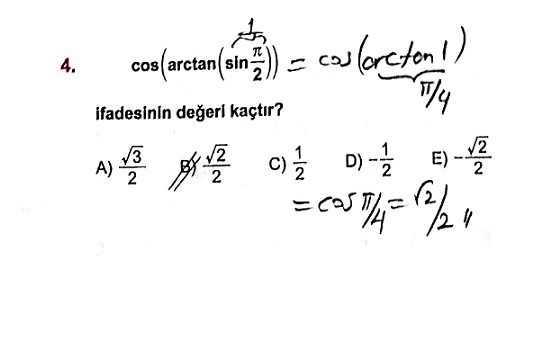 1
4. cos(arctan(sin π/2)) = cos(arctan 1)
π/4
ifadesinin değeri kaçtır?
A) √3/2 B) √2/2 C) 1/2 D) -1/2 E) -√2/2
= cos π/4 = √2/2 //